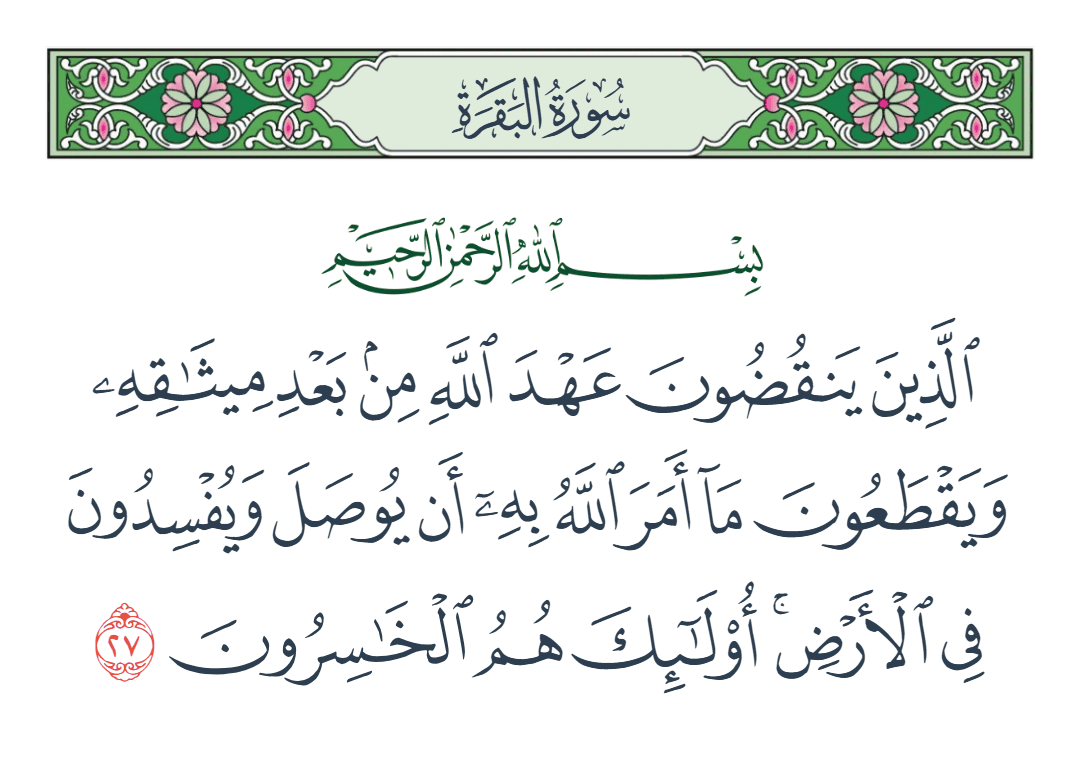 سُورَةُ البَقَرَةِ
بِسْمِ ٱللَّهِ ٱلرَّحْمَٰنِ ٱلرَّحِيمِ
ٱلَّذِينَ يَنقُضُونَ عَهْدَ ٱللَّهِ مِنۢ بَعْدِ مِيثَٰقِهِۦ
وَيَقْطَعُونَ مَآ أَمَرَ ٱللَّهُ بِهِۦٓ أَن يُوصَلَ وَيُفْسِدُونَ
فِى ٱلْأَرْضِ ۚ أُو۟لَٰٓئِكَ هُمُ ٱلْخَٰسِرُونَ ٢٧